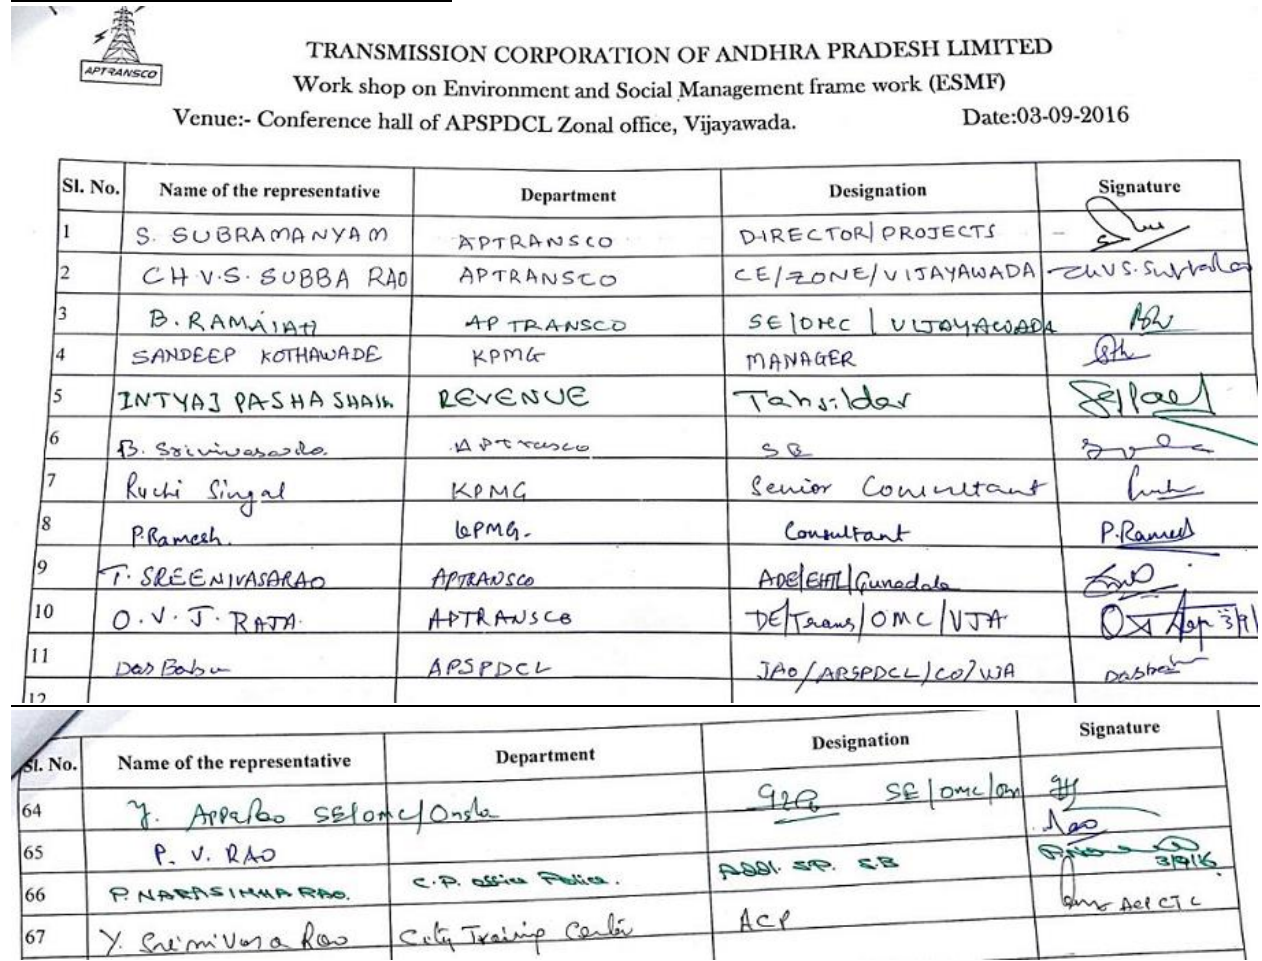 APTRANSCO
TRANSMISSION CORPORATION OF ANDHRA PRADESH LIMITED
Work shop on Environment and Social Management frame work (ESMF)
Venue:- Conference hall of APSPDCL Zonal office, Vijayawada. Date:03-09-2016
Sl. No. Name of the representative Department Designation Signature
1 S. SUBRAMANYAM APTRANSCO DIRECTOR/PROJECTS
2 CH.V.S. SUBBA RAO APTRANSCO CE/ZONE/VIJAYAWADA Ch.V.S. Subbarao
3 B. RAMAIAH APTRANSCO SE/OMC/VIJAYAWADA
4 SANDEEP KOTHAWADE KPMG MANAGER
5 INTYAJ PASHA SHAIK REVENUE Tahsildar
6 B. Srinivasarao APTransco SE
7 Ruchi Singal KPMG Senior Consultant
8 P.Ramesh. KPMG. Consultant P.Ramesh
9 T. SREENIVASARAO APTRANSCO ADE/EHT/Gunadala
10 O.V.J. RAJA APTRANSCO DE/Trans/OMC/VJA 3/9/
11 Das Babu APSPDCL JAO/APSPDCL/CO/VJA Dasbabu
12
Sl. No. Name of the representative Department Designation Signature
64 Y. AppaRao SE/OMC/Ongle SE/OMC/On
65 P. V. RAO Rao
66 P. NARASIMHA RAO. C.P. office Police. ADDl. SP. SB 3/9/16
67 Y. Srinivasa Rao City Training Center ACP ACP CTC